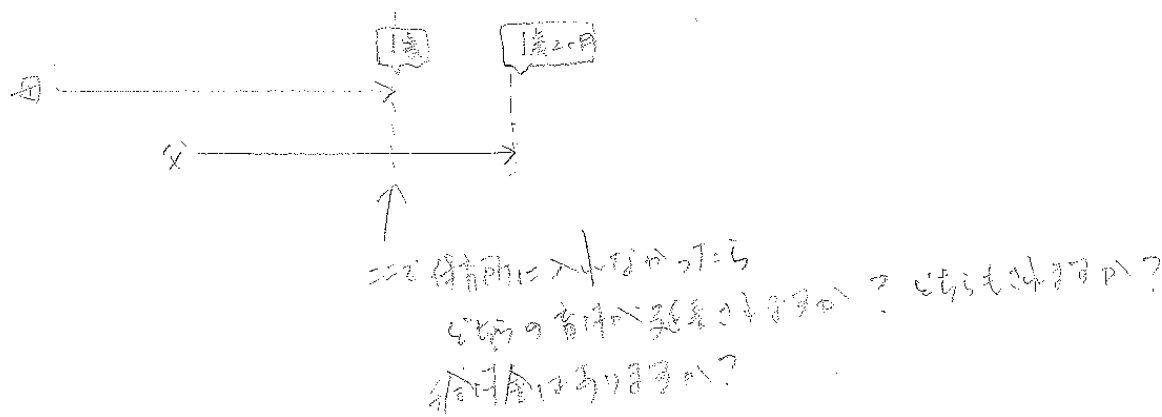 1歳 1歳2ヶ月
母
父
ここで保育所に入れなかったら
どちらの育休が延長されますか？どちらもされますか？
給付金はありますか？